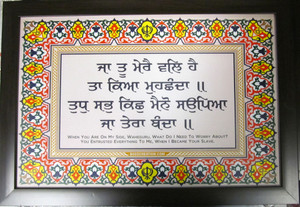 ਜਾ ਤੂ ਮੇਰੈ ਵਲਿ ਹੈ
ਤਾ ਕਿਆ ਮੁਹਛੰਦਾ ॥
ਤੁਧੁ ਸਭ ਕਿਛੁ ਮੈਨੋ ਸਉਪਿਆ
ਜਾ ਤੇਰਾ ਬੰਦਾ ॥
WHEN YOU ARE ON MY SIDE, WAHEGURU, WHAT DO I NEED TO WORRY ABOUT?
YOU ENTRUSTED EVERYTHING TO ME, WHEN I BECAME YOUR SLAVE.